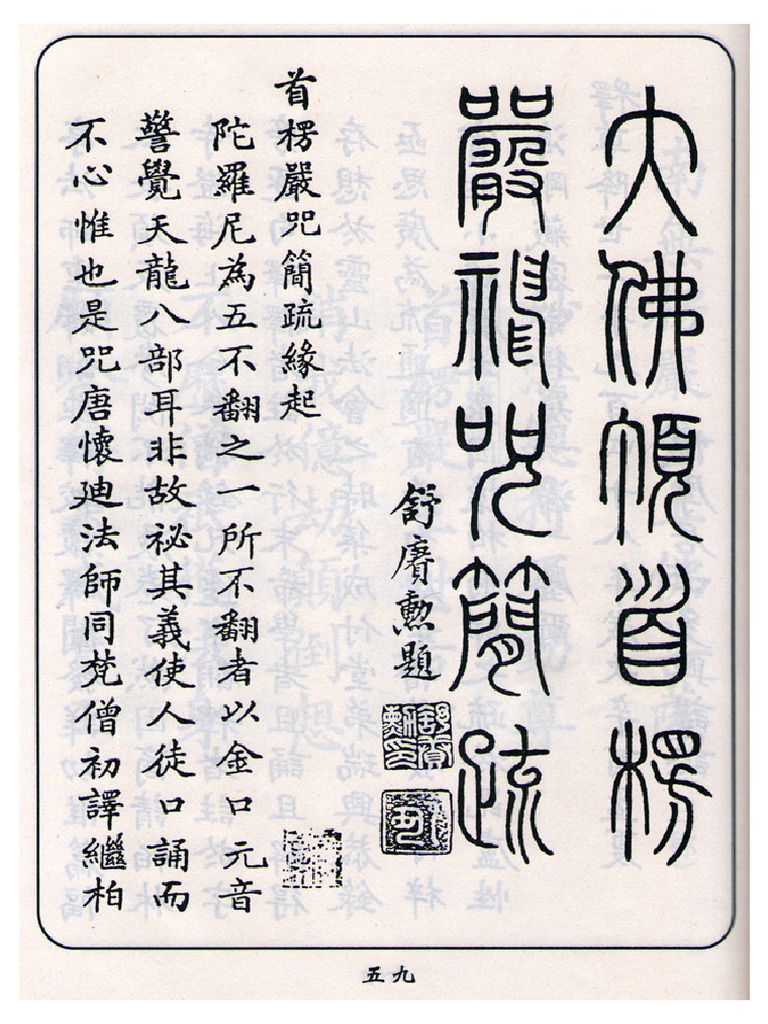 大佛頂首楞
嚴神咒簡疏
舒賡勲題
首楞嚴咒簡疏緣起
陀羅尼為五不翻之一所不翻者以金口元音
警覺天龍八部耳非故祕其義使人徒口誦而
不心惟也是咒唐懷廸法師同梵僧初譯繼柏
五九